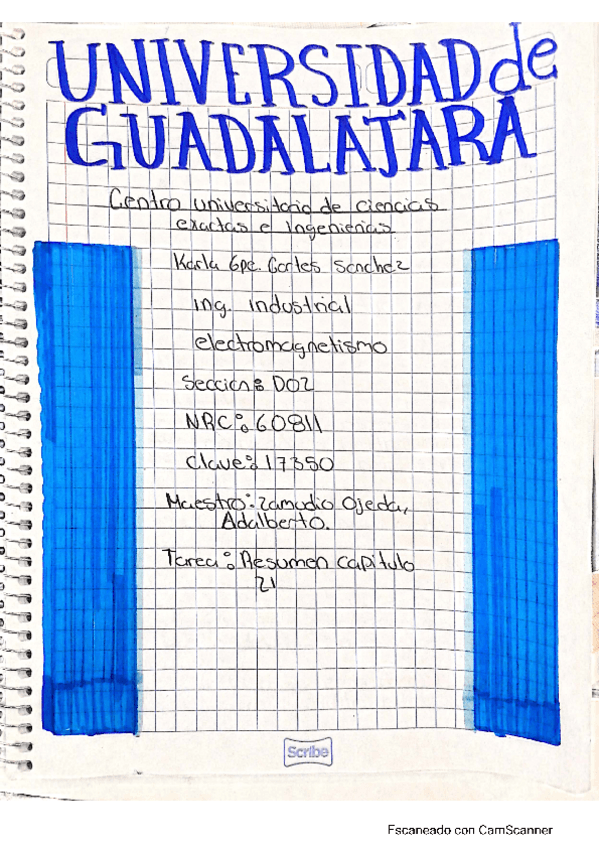 UNIVERSIDAD de
GUADALAJARA
Centro universitario de ciencias
exactas e Ingenierias
Karla Gpe. Cortes Sanchez
ing. industrial
electromagnetismo
Seccion: D02
NRC: 60811
Clave: 17350
Maestro: Zamudio Ojeda,
Adalberto.
Tarea: Resumen capitulo
21
Scribe
Escaneado con CamScanner